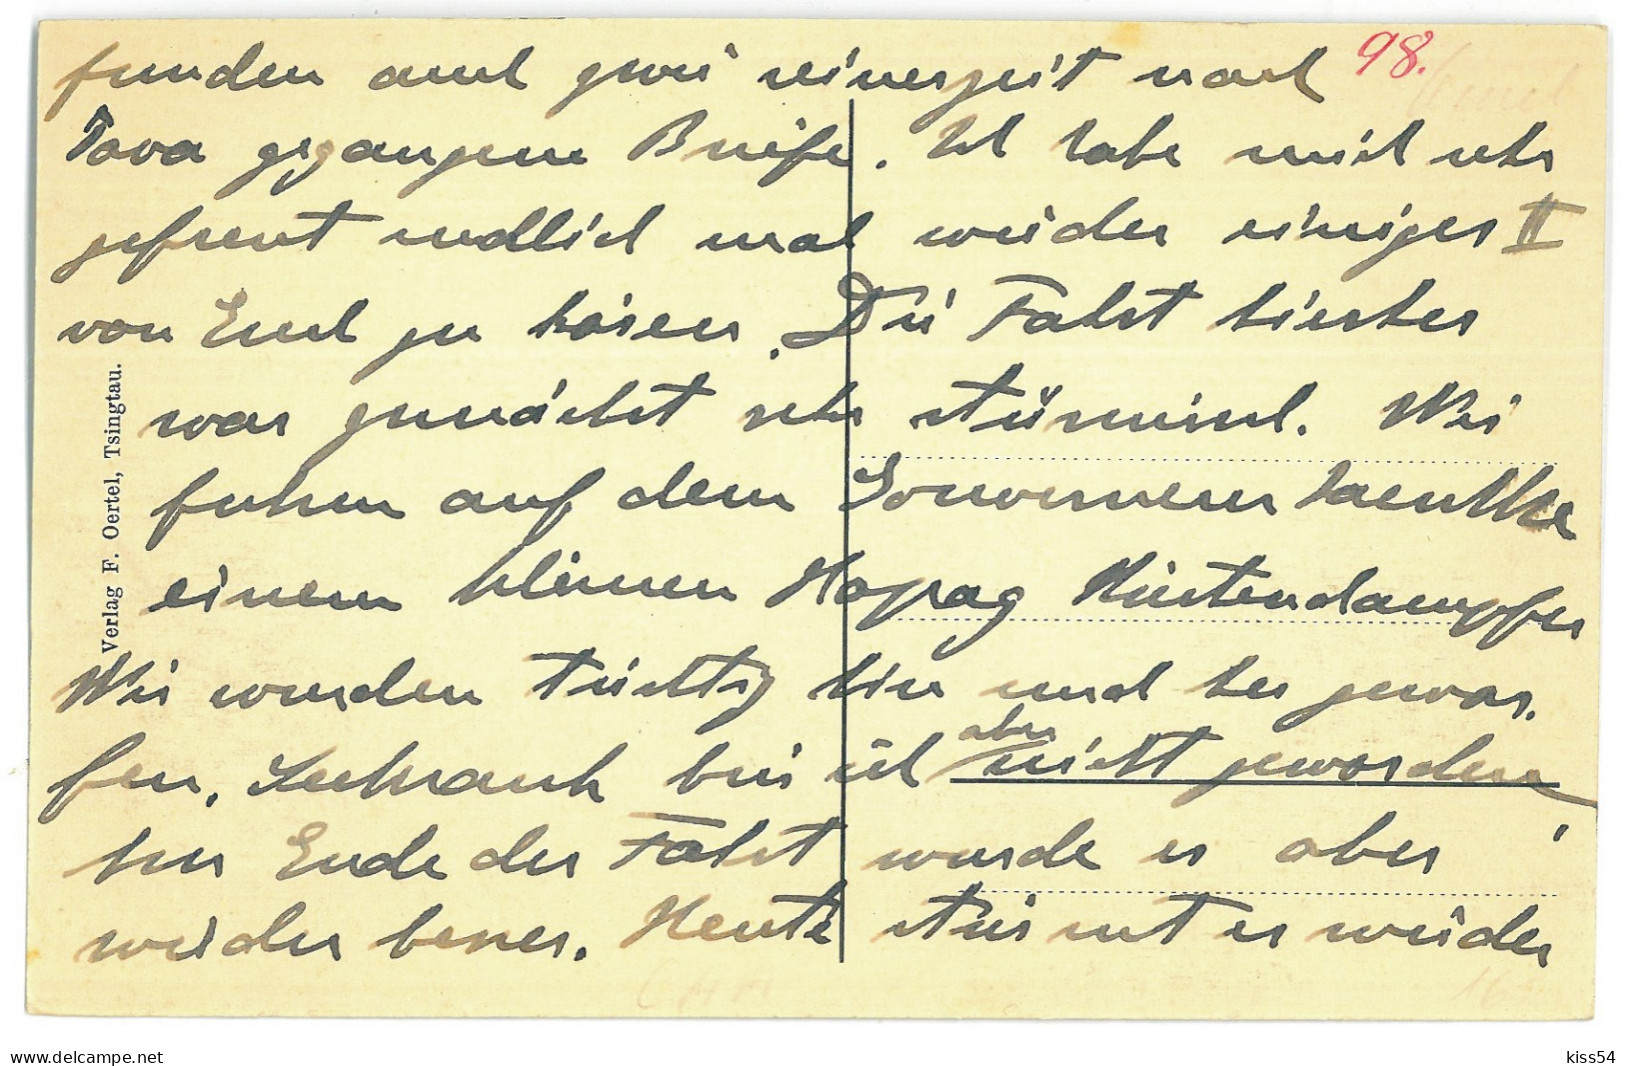 funden auch zwei seinerzeit nach
98.
Java gegangene Briefe. Ich habe mich sehr
gefreut endlich mal wieder einiges II
von Euch zu hören. Die Fahrt hierher
war zunächst sehr stürmisch. Wir
fuhren auf dem Gouvernem
einem kleinen Hapag Küstendampfer
Wir wurden tüchtig hin und her gewor-
aber
fen. Seekrank bin ich nicht geworden
Ende der Fahrt wurde es aber
wieder besser. Heute stürmt es wieder
Verlag F. Oertel, Tsingtau.
delcampe.net
kiss54